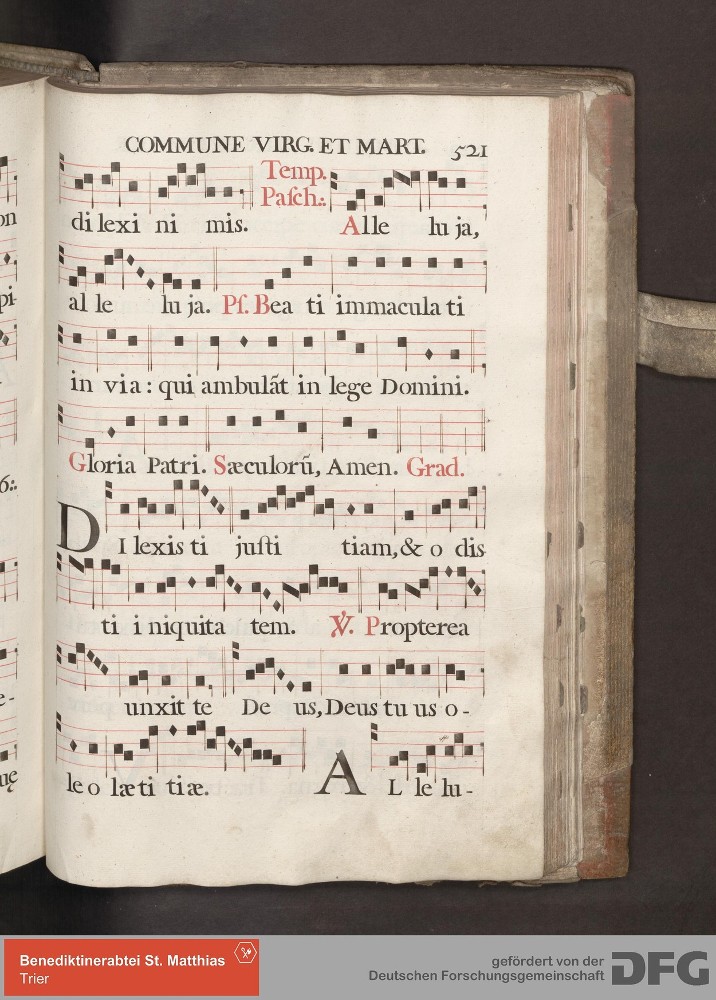 COMMUNE VIRG. ET MART. 521
di lexi ni mis. Temp. Pasch.: Alle lu ja,
al le lu ja. Ps. Bea ti immacula ti
in via : qui ambulãt in lege Domini.
Gloria Patri. Sæculorũ, Amen. Grad.
DI lexis ti justi tiam, & o dis
ti i niquita tem. ℣. Propterea
unxit te De us, Deus tu us o-
le o læti tiæ. AL le lu-
on
pi-
6:.
e-
uę
Benediktinerabtei St. Matthias
Trier
gefördert von der
Deutschen Forschungsgemeinschaft DFG